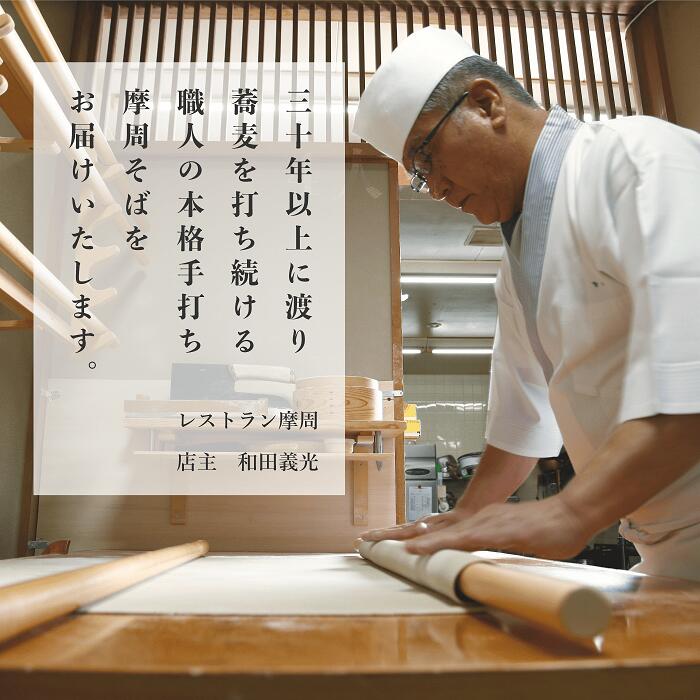 三十年以上に渡り
蕎麦を打ち続ける
職人の本格手打ち
摩周そばを
お届けいたします。
レストラン摩周
店主　和田義光